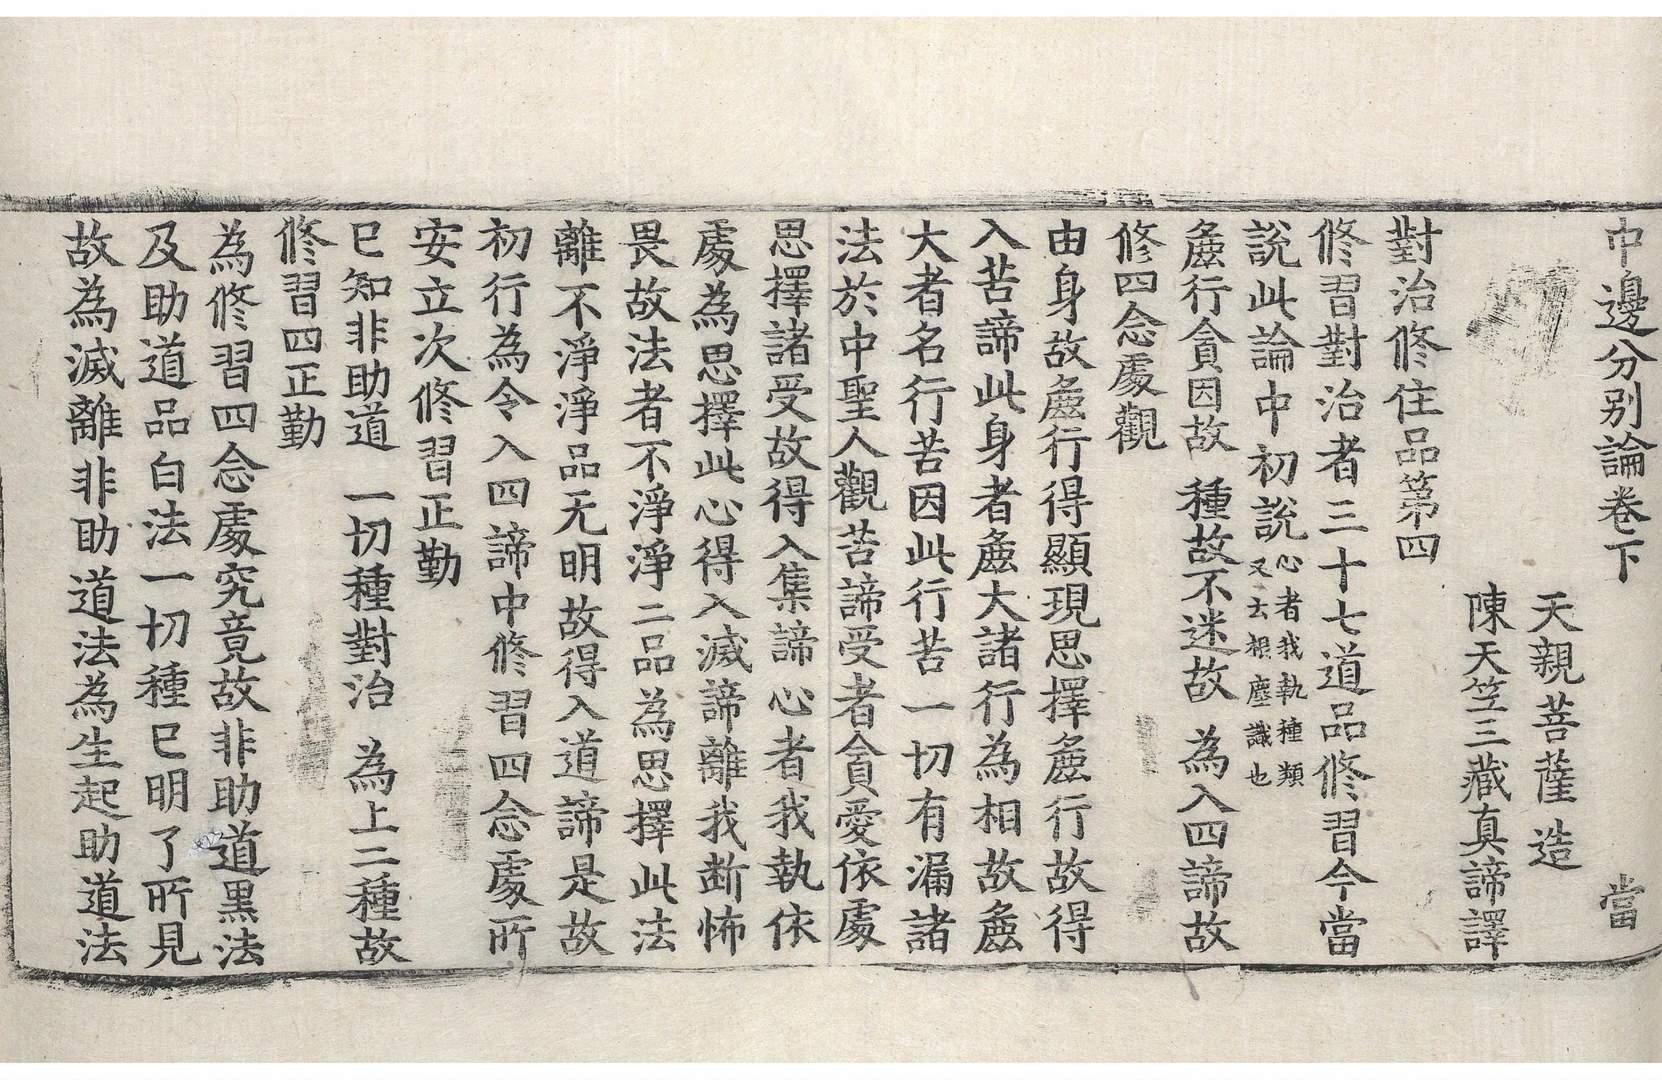 中邊分別論卷下　當
天親菩薩造
陳天竺三藏真諦譯
對治修住品第四
修習對治者三十七道品修習今當
說此論中初說心者我執種類
又云根塵識也
麁行貪因故　種故不迷故　為入四諦故
修四念處觀
由身故麁行得顯現思擇麁行故得
入苦諦此身者麁大諸行為相故麁
大者名行苦因此行苦一切有漏諸
法於中聖人觀苦諦受者貪愛依處
思擇諸受故得入集諦心者我執依
處為思擇此心得入滅諦離我断怖
畏故法者不淨淨二品為思擇此法
離不淨淨品无明故得入道諦是故
初行為令入四諦中修習四念處所
安立次修習正勤
已知非助道　一切種對治　為上二種故
修習四正勤
為修習四念處究竟故非助道黑法
及助道品白法一切種已明了所見
故為滅離非助道法為生起助道法